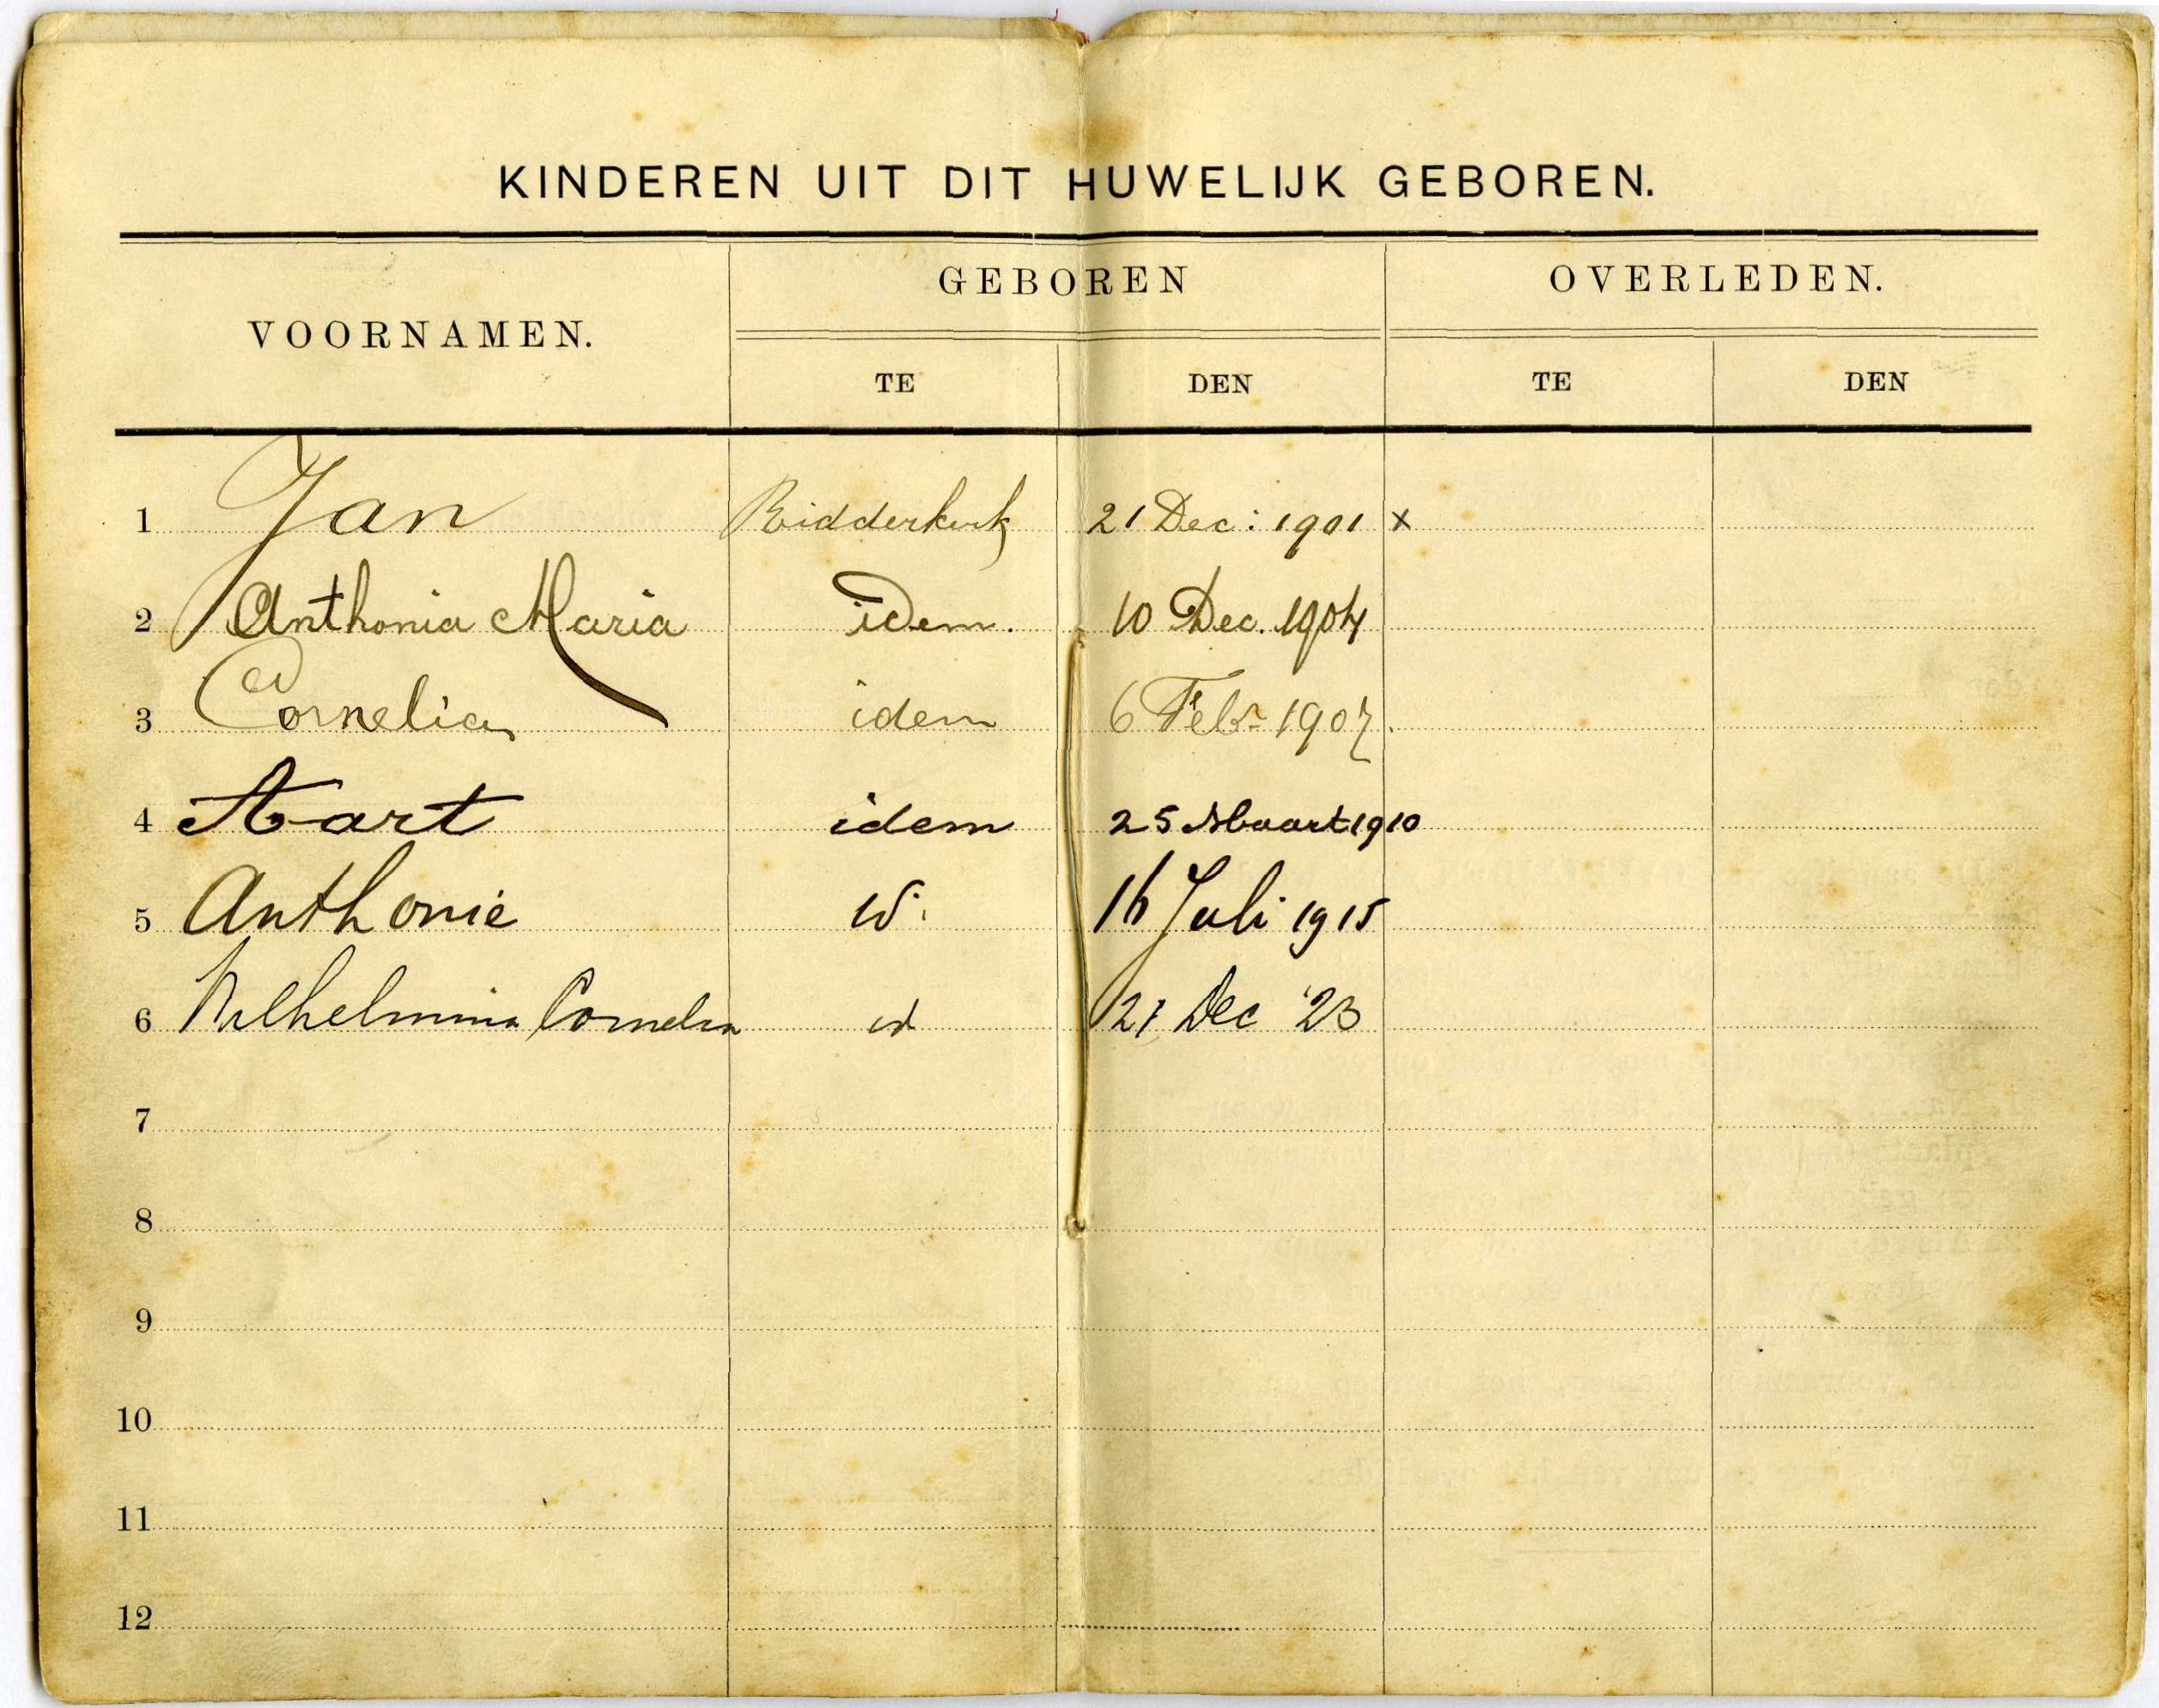 KINDEREN UIT DIT HUWELIJK GEBOREN.
VOORNAMEN. GEBOREN OVERLEDEN.
TE DEN TE DEN
1 Jan Ridderkerk 21 Dec: 1901 x
2 Anthonia Maria idem. 10 Dec. 1904
3 Cornelia idem 6 Febr 1907.
4 Aart idem 25 Maart 1910
5 Anthonie id. 16 Juli 1915
6 Wilhelmina Cornelia id 21 Dec '23
7
8
9
10
11
12